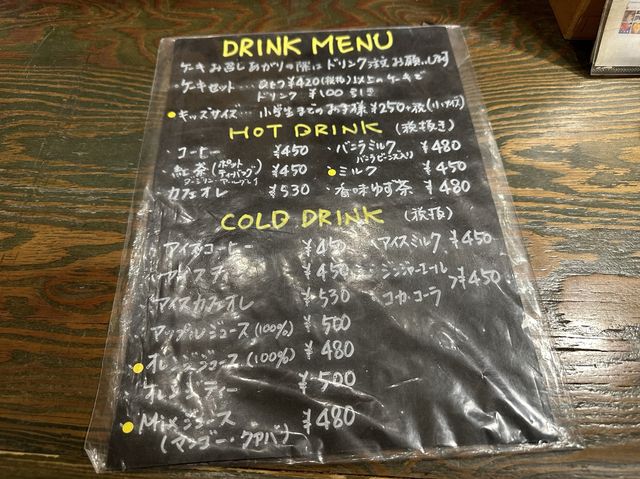 DRINK MENU
ケーキお召しあがりの際にドリンク注文お願いします
・ケーキセット…ひとつ¥420(税抜)以上のケーキで
ドリンク ¥100引き
・キッズサイズ…小学生までのお子様 ¥250+税(小サイズ)
HOT DRINK (税抜き)
・コーヒー ¥450
・紅茶(ポット ティーバッグ) ¥450
ダージリン・アールグレイ
カフェオレ ¥530
・バニラミルク ¥480
バニラビーンズ入り
・ミルク ¥450
・香味ゆず茶 ¥480
COLD DRINK (税抜)
・アイスコーヒー ¥450
アイスティー ¥450
アイスカフェオレ ¥530
アップルジュース(100%) ¥500
オレンジジュース(100%) ¥480
オレンジティー ¥500
Mixジュース ¥480
(マンゴー・グァバ)
・アイスミルク ¥450
・ジンジャーエール
・コカ・コーラ
>¥450